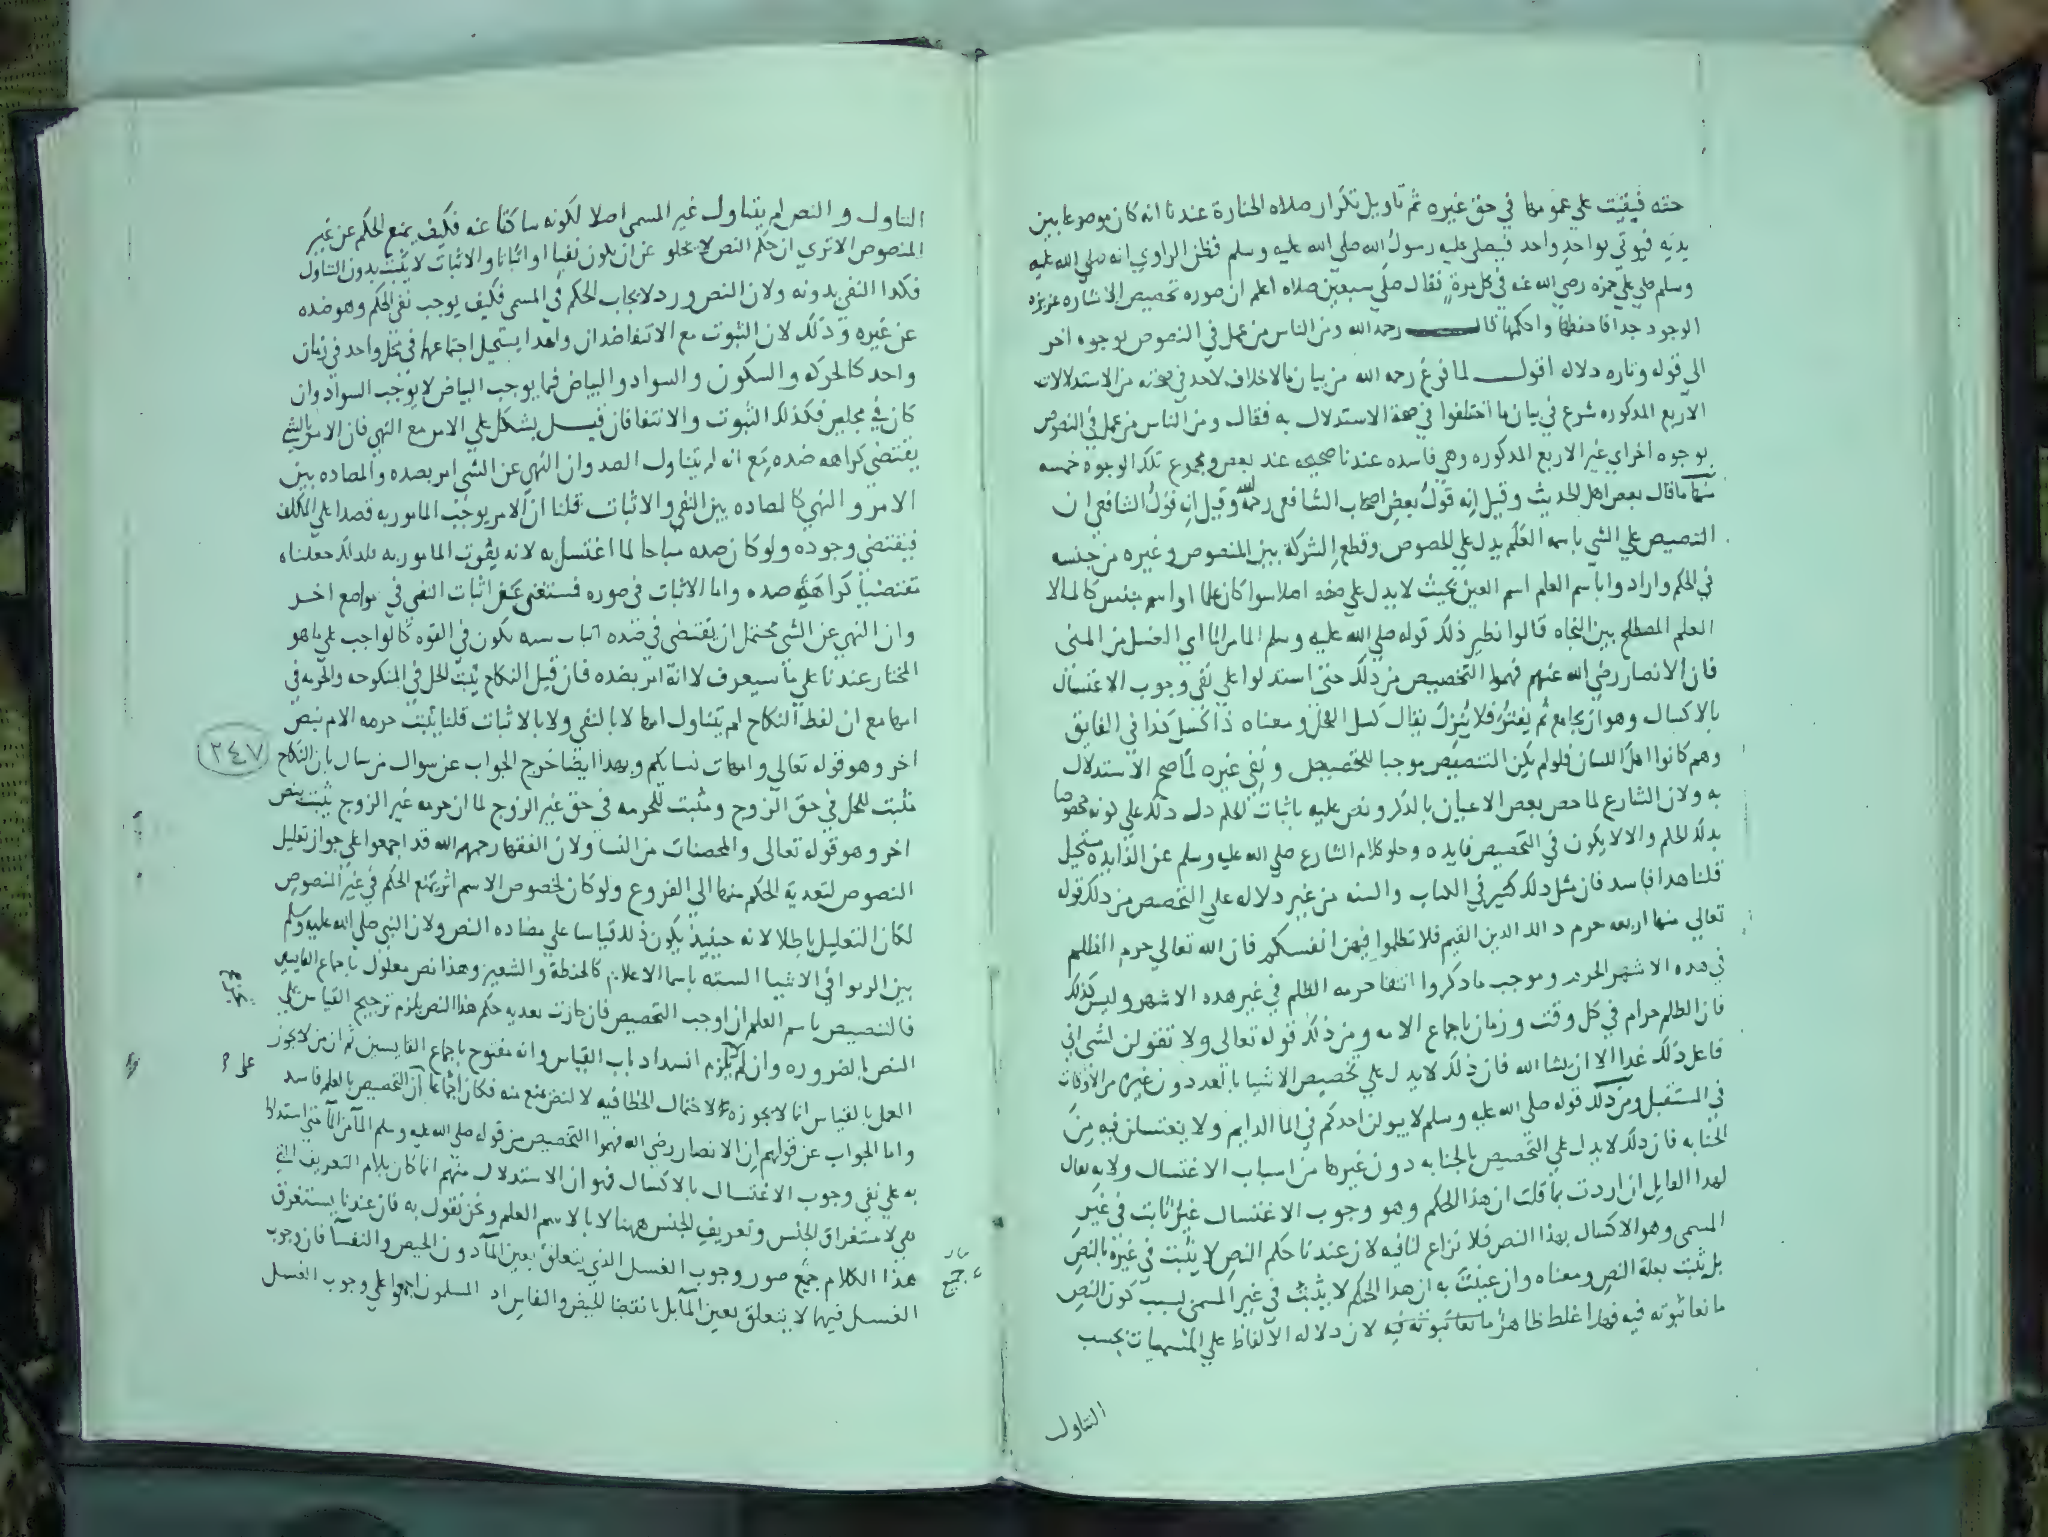 حقه فبقيت علي عمومها في حق غيره ثم تاويل تكرار صلاه الجنازة عندنا انه كان موضوعا بين
يديه فيوتي بواحد واحد فيصلي عليه رسول الله صلي الله عليه وسلم فظن الراوي انه صلي الله عليه
وسلم صلي علي حمزه رضي الله عنه في كل مرة فقال صلي سبعين صلاه اعلم ان صوره تخصيص الاشاره عزيزه
الوجود جدا فاحفظها واحكمها قال رحمه الله ومن الناس من عمل في النصوص بوجوه اخر
الي قوله وتاره دلاله اقول لما فرغ رحمه الله من بيان ما لاخلاف لاحد في صحته من الاستدلالات
الاربع المذكوره شرع في بيان ما اختلفوا في صحة الاستدلال به فقال ومن الناس من عمل في النصوص
بوجوه اخر اي غير الاربع المذكوره وهي فاسده عندنا صحيحه عند بعض ومجموع تلك الوجوه خمسه
منها ما قال بعض اهل الحديث وقيل انه قول بعض اصحاب الشافعي رحمه الله وقيل انه قول الشافعي ان
التنصيص علي الشي باسمه العلم يدل علي الخصوص وقطع الشركة بين المنصوص وغيره من جنسه
في الحكم وارادوا باسم العلم اسم العين بحيث لا يدل علي صفه اصلا سوا كان علما او اسم جنس كالما لا
العلم المصطلح بين النحاه قالوا نظير ذلك قوله صلي الله عليه وسلم الما من الما اي الغسل من المني
فان الانصار رضي الله عنهم فهموا التخصيص من ذلك حتي استدلوا علي نفي وجوب الاغتسال
بالاكسال وهو ان يجامع ثم يفتر فلا ينزل يقال كسل الفحل ومعناه ذا كسل كذا في الفايق
وهم كانوا اهل اللسان فلو لم يكن التنصيص موجبا للتخصيص و نفي غيره لما صح الاستدلال
به ولان الشارع لما خص بعض الاعيان بالذكر ونص عليه باثبات الحكم دل ذلك علي كونه مخصوصا
بذلك الحكم والا لا يكون في التخصيص فايده وخلو كلام الشارع صلي الله عليه وسلم عن الفايده مستحيل
قلنا هذا فاسد فان مثل ذلك كثير في الكتاب والسنه من غير دلاله علي التخصيص من ذلك قوله
تعالي منها اربعه حرم ذلك الدين القيم فلا تظلموا فيهن انفسكم فان الله تعالي حرم الظلم
في هذه الاشهر الحرم وموجب ما ذكروا انتفا حرمه الظلم في غير هذه الاشهر وليس كذلك
فان الظلم حرام في كل وقت وزمان باجماع الامه ومن ذلك قوله تعالي ولا تقولن لشي اني
فاعل ذلك غدا الا ان يشا الله فان ذلك لا يدل علي تخصيص الاشيا بالغد دون غيره من الاوقات
في المستقبل ومن ذلك قوله صلي الله عليه وسلم لا يبولن احدكم في الما الدايم ولا يغتسلن فيه من
الجنابه فان ذلك لا يدل علي التخصيص بالجنابه دون غيرها من اسباب الاغتسال ولانه يقال
لهذا القايل ان اردت بما قلت ان هذا الحكم وهو وجوب الاغتسال غير ثابت في غير
المسمي وهو الاكسال بهذا النص فلا نزاع لنا فيه لان عندنا حكم النص لا يثبت في غيره بالنص
بل يثبت بعلة النص ومعناه وان عنيت به ان هذا الحكم لا يثبت في غير المسمي بسبب كون النص
مانعا ثبوته فيه فهذا غلط ظاهر مانعا ثبوته فيه لان دلاله الالفاظ علي المسميات بحسب
التناول
التناول والنص لم يتناول غير المسمي اصلا لكونه ساكتا عنه فكيف يمنع الحكم عن غير
المنصوص الاتري ان حكم النص لا يخلو عن ان يكون نفيا او اثباتا والاثبات لا يثبت بدون التناول
فكذا النفي بدونه ولان النص ورد لايجاب الحكم في المسمي فكيف يوجب نفي الحكم وهو ضده
عن غيره وذلك لان الثبوت مع الانتفا ضدان ولهذا يستحيل اجتماعهما في محل واحد في زمان
واحد كالحركه والسكون والسواد والبياض فما يوجب البياض لا يوجب السواد وان
كان في محلين فكذلك الثبوت والانتفا فان قيل يشكل علي الامر مع النهي فان الامر بالشي
يقتضي كراهه ضده مع انه لم يتناول الضد وان النهي عن الشي امر بضده والمضاده بين
الامر والنهي كالمضاده بين النفي والاثبات قلنا ان الامر يوجب المامور به قصدا علي المكلف
فيقتضي وجوده ولو كان ضده مباحا لما اغتسل به لانه يفوت المامور به فلذلك جعلناه
مقتضيا كراهة ضده واما الاثبات في صوره فستغني عن اثبات النفي في مواضع اخر
وان النهي عن الشي محتمل ان يقتضي في ضده اثبات سنه يكون في القوه كالواجب علي ما هو
المختار عندنا علي ما سيعرف لا انه امر بضده فان قيل النكاح يثبت الحل في المنكوحه والحرمه في
امها مع ان لفظ النكاح لم يتناول امها لا بالنفي ولا بالاثبات قلنا يثبت حرمه الام بنص
اخر وهو قوله تعالي وامهات نسايكم وبهذا ايضا خرج الجواب عن سوال من سال بان النكاح
٢٤٧
مثبت للحل في حق الزوج ومثبت للحرمه في حق غير الزوج لما ان حرمه غير الزوج يثبت بنص
اخر وهو قوله تعالي والمحصنات من النسا ولان الفقها رحمهم الله قد اجمعوا علي جواز تعليل
النصوص لتعدية الحكم منها الي الفروع ولو كان لخصوص الاسم اثر يمنع الحكم في غير المنصوص
لكان التعليل باطلا لانه حينيذ يكون ذلك قياسا علي مضاده النص ولان النبي صلي الله عليه وسلم
بين الربوا في الاشيا السته باسما الاعلام كالحنطة والشعير وهذا نص معلول باجماع القايسين
فالتنصيص باسم العلم ان اوجب التخصيص فان جازت تعديه حكم هذا النص يلزم ترجيح القياس علي
النص بالضروره وان لم يلزم انسداد باب القياس وانه مفتوح باجماع القايسين ثم ان من لا يجوز
العمل بالقياس انما لا يجوزه لاحتمال الخطا فيه لا لنص يمنع منه فكان اجماعا ان التخصيص بالعلم فاسد
واما الجواب عن قولهم ان الانصار رضي الله فهموا التخصيص من قوله صلي الله عليه وسلم الما من الما حتي استدلوا
به علي نفي وجوب الاغتسال بالاكسال فهو ان الاستدلال منهم انما كان بلام التعريف التي
هي لاستغراق الجنس وتعريف الجنس ههنا لا بالاسم العلم ونحن نقول به فان عندنا يستغرق
هذا الكلام جميع صور وجوب الغسل الذي يتعلق بعين الما دون الحيض والنفسا فان وجوب
الغسل فيهما لا يتعلق بعين الما بل بانقضا الحيض والنفاس اذ المسلمون اجمعوا علي وجوب الغسل